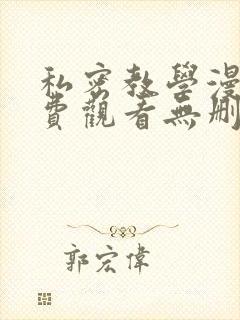 私密教學漫
費觀看無刪
郭宏偉